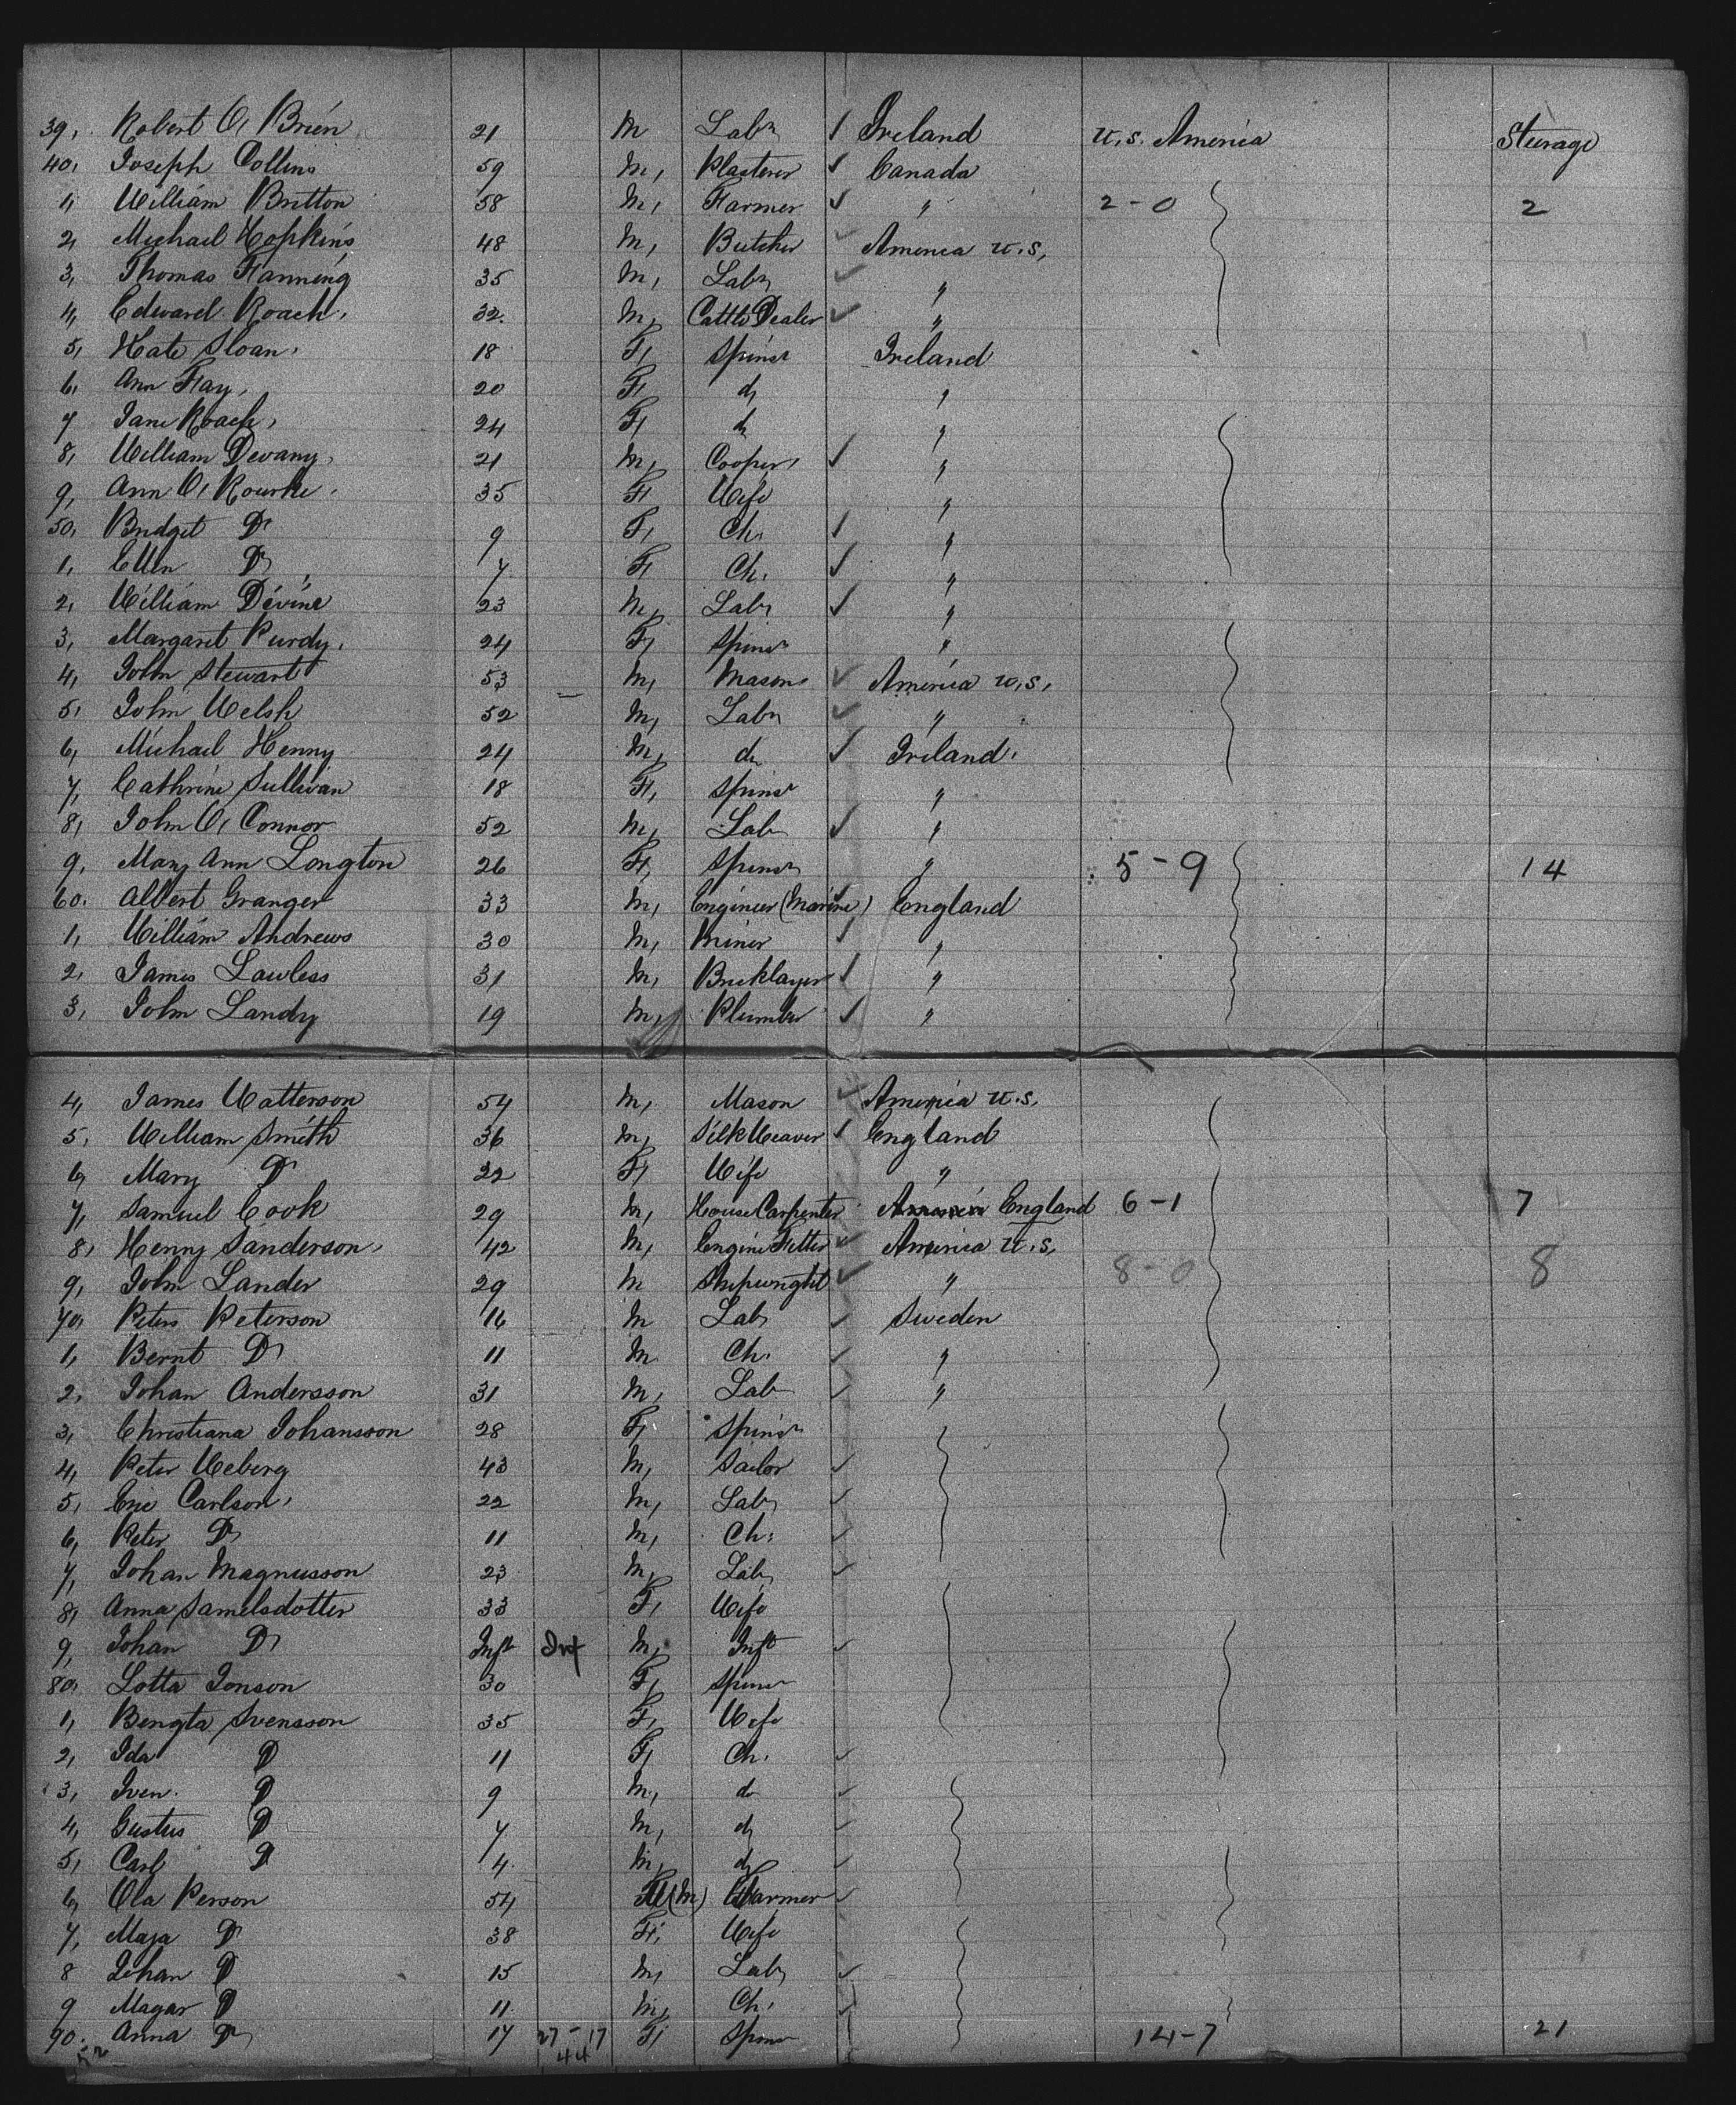 39, Robert O, Brien 21 M Labr Ireland U.S. America Steerage
40, Joseph Collins 59 M, Plasterer Canada
1, William Britton 58 M, Farmer " 2-0 2
2, Michael Hopkins 48 M, Butcher America U.S,
3, Thomas Fanning 35 M, Labr "
4, Edward Roach, 32. M, Cattle Dealer "
5, Kate Sloan, 18 F, Spinsr Ireland
6, Ann Fay, 20 F, do "
7 Jane Roach, 24 F, do "
8, William Devany, 21 M, Cooper, "
9, Ann O, Rourke, 35 F, Wife "
50, Bridget Do 9 F, Ch, "
1, Ellen Do 7 F, Ch. "
2, William Devine 23 M, Labr "
3, Margaret Purdy, 24 F, Spinsr "
4, John Stewart 53 M, Mason America U,S,
5, John Welsh 52 M, Labr "
6, Michael Henny 24 M, do Ireland,
7, Cathrine Sullivan 18 F, Spinsr "
8, John O, Connor 52 M, Labr "
9, Mary Ann Longton 26 F, Spinsr " 5-9 14
60. Albert Granger 33 M, Engineer (Marine) England
1, William Andrews 30 M, Miner "
2, James Lawless 31 M, Bricklayer "
3, John Landy 19 M, Plumber "
4, James Watterson 54 M, Mason America U.S.
5, William Smith 36 M, Silk Weaver England
6, Mary Do 22 F, Wife "
7, Samuel Cook 29 M, House Carpenter England 6-1 7
8, Henry Sanderson, 42 M, Engine Fitter America U.S, 8-0 8
9, John Lander 29 M Shipwright "
70, Peter Peterson 16 M Labr Sweden
1, Bernt Do 11 M Ch. "
2, Johan Andersson 31 M, Labr "
3, Christiana Johansson 28 F, Spinsr
4, Peter Weberg 43 M, Sailor
5, Eric Carlson, 22 M, Labr
6, Peter Do 11 M, Ch:
7, Johan Magnusson 23 M, Labr
8, Anna Samelsdotter 33 F, Wife
9, Johan Do Inft Inf M, Inft
80, Lotta Jonson 30 F, Spinsr
1, Bengta Svensson 35 F, Wife
2, Ida Do 11 F, Ch.
3, Sven. Do 9 M, do
4, Gustus Do 7 M, do
5, Carl Do 4. M, do
6, Ola Person 54 (M) Farmer
7, Maja Do 38 F, Wife
8 Johan Do 15 M, Labr
9 Magar Do 11. M, Ch,
90. Anna Do 17 27-17 F, Spinsr 14-7 21
52 44